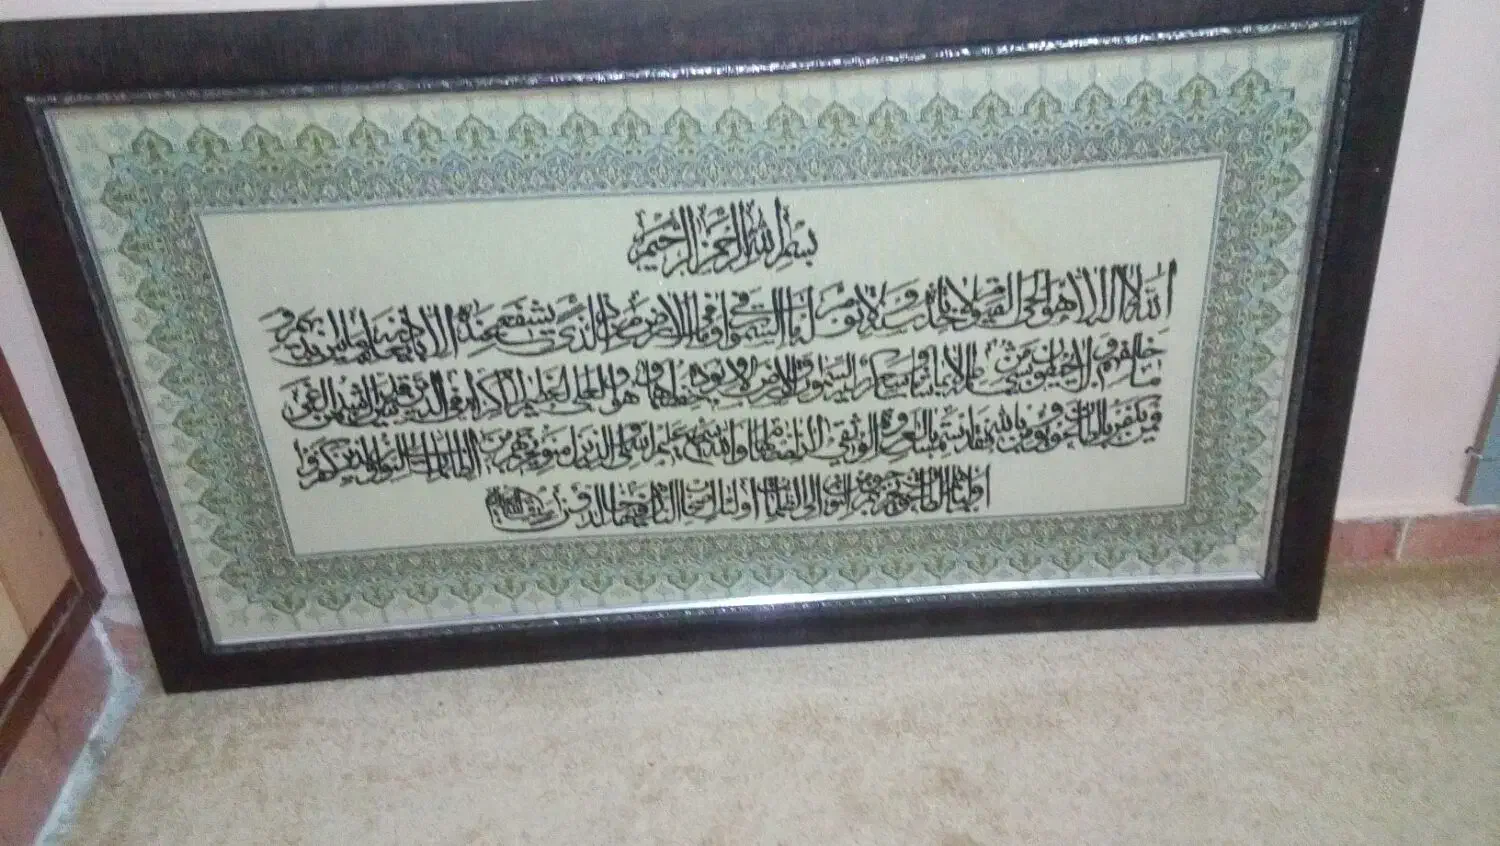 بسم الله الرحمن الرحيم
الله لا اله الا هو الحي القيوم لا تاخذه سنة ولا نوم له ما في السموات وما في الارض من ذا الذي يشفع عنده الا باذنه يعلم ما بين ايديهم و
ما خلفهم ولا يحيطون بشيء من علمه الا بما شاء وسع كرسيه السموات والارض ولا يؤده حفظهما وهو العلي العظيم لا اكراه في الدين قد تبين الرشد من الغي
فمن يكفر بالطاغوت ويؤمن بالله فقد استمسك بالعروة الوثقى لا انفصام لها والله سميع عليم الله ولي الذين امنوا يخرجهم من الظلمات الى النور والذين كفروا
اولياؤهم الطاغوت يخرجونهم من النور الى الظلمات اولئك اصحاب النار هم فيها خالدون